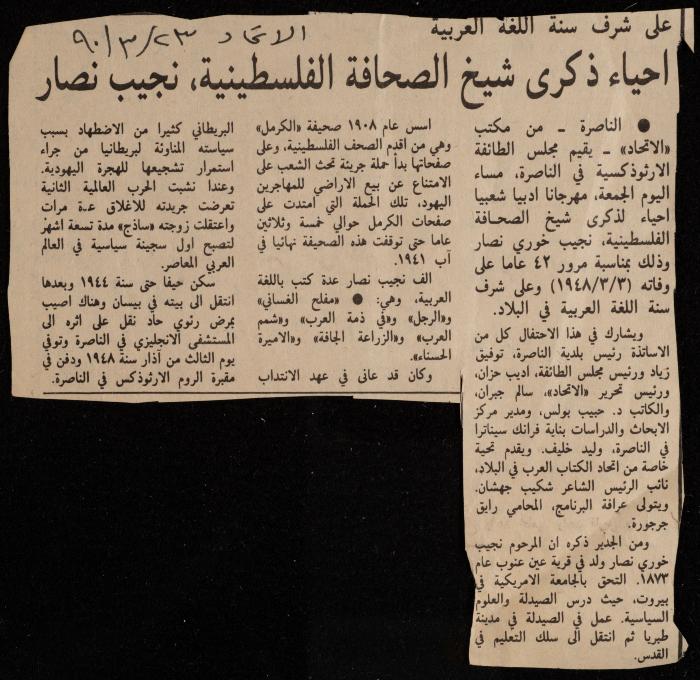 الاتحاد ٢٣/٣/٩٠
على شرف سنة اللغة العربية
احياء ذكرى شيخ الصحافة الفلسطينية، نجيب نصار
● الناصرة ـ من مكتب
«الاتحاد» ـ يقيم مجلس الطائفة
الارثوذكسية في الناصرة، مساء
اليوم الجمعة، مهرجانا ادبيا شعبيا
احياء لذكرى شيخ الصحافة
الفلسطينية، نجيب خوري نصار
وذلك بمناسبة مرور ٤٢ عاما على
وفاته (١٩٤٨/٣/٣) وعلى شرف
سنة اللغة العربية في البلاد.
ويشارك في هذا الاحتفال كل من
الاساتذة رئيس بلدية الناصرة، توفيق
زياد ورئيس مجلس الطائفة، اديب حزان،
ورئيس تحرير «الاتحاد»، سالم جبران،
والكاتب د. حبيب بولس، ومدير مركز
الابحاث والدراسات بناية فرانك سيناترا
في الناصرة، وليد خليف. ويقدم تحية
خاصة من اتحاد الكتاب العرب في البلاد،
نائب الرئيس الشاعر شكيب جهشان.
ويتولى عرافة البرنامج، المحامي رايق
جرجورة.
ومن الجدير ذكره ان المرحوم نجيب
خوري نصار ولد في قرية عين عنوب عام
١٨٧٣. التحق بالجامعة الامريكية في
بيروت، حيث درس الصيدلة والعلوم
السياسية. عمل في الصيدلة في مدينة
طبريا ثم انتقل الى سلك التعليم في
القدس.
اسس عام ١٩٠٨ صحيفة «الكرمل»
وهي من اقدم الصحف الفلسطينية، وعلى
صفحاتها بدأ حملة جريئة تحث الشعب على
الامتناع عن بيع الاراضي للمهاجرين
اليهود، تلك الحملة التي امتدت على
صفحات الكرمل حوالي خمسة وثلاثين
عاما حتى توقفت هذه الصحيفة نهائيا في
آب ١٩٤١.
الف نجيب نصار عدة كتب باللغة
العربية، وهي: ● «مفلح الغساني»
و«الرجل» و«في ذمة العرب» و«شمم
العرب» و«الزراعة الجافة» و«الاميرة
الحسناء».
وكان قد عانى في عهد الانتداب
البريطاني كثيرا من الاضطهاد بسبب
سياسته المناوئة لبريطانيا من جراء
استمرار تشجيعها للهجرة اليهودية.
وعندا نشبت الحرب العالمية الثانية
تعرضت جريدته للاغلاق عدة مرات
واعتقلت زوجته «ساذج» مدة تسعة اشهر
لتصبح اول سجينة سياسية في العالم
العربي المعاصر.
سكن حيفا حتى سنة ١٩٤٤ وبعدها
انتقل الى بيته في بيسان وهناك اصيب
بمرض رئوي حاد نقل على اثره الى
المستشفى الانجليزي في الناصرة وتوفي
يوم الثالث من آذار سنة ١٩٤٨ ودفن في
مقبرة الروم الارثوذكس في الناصرة.